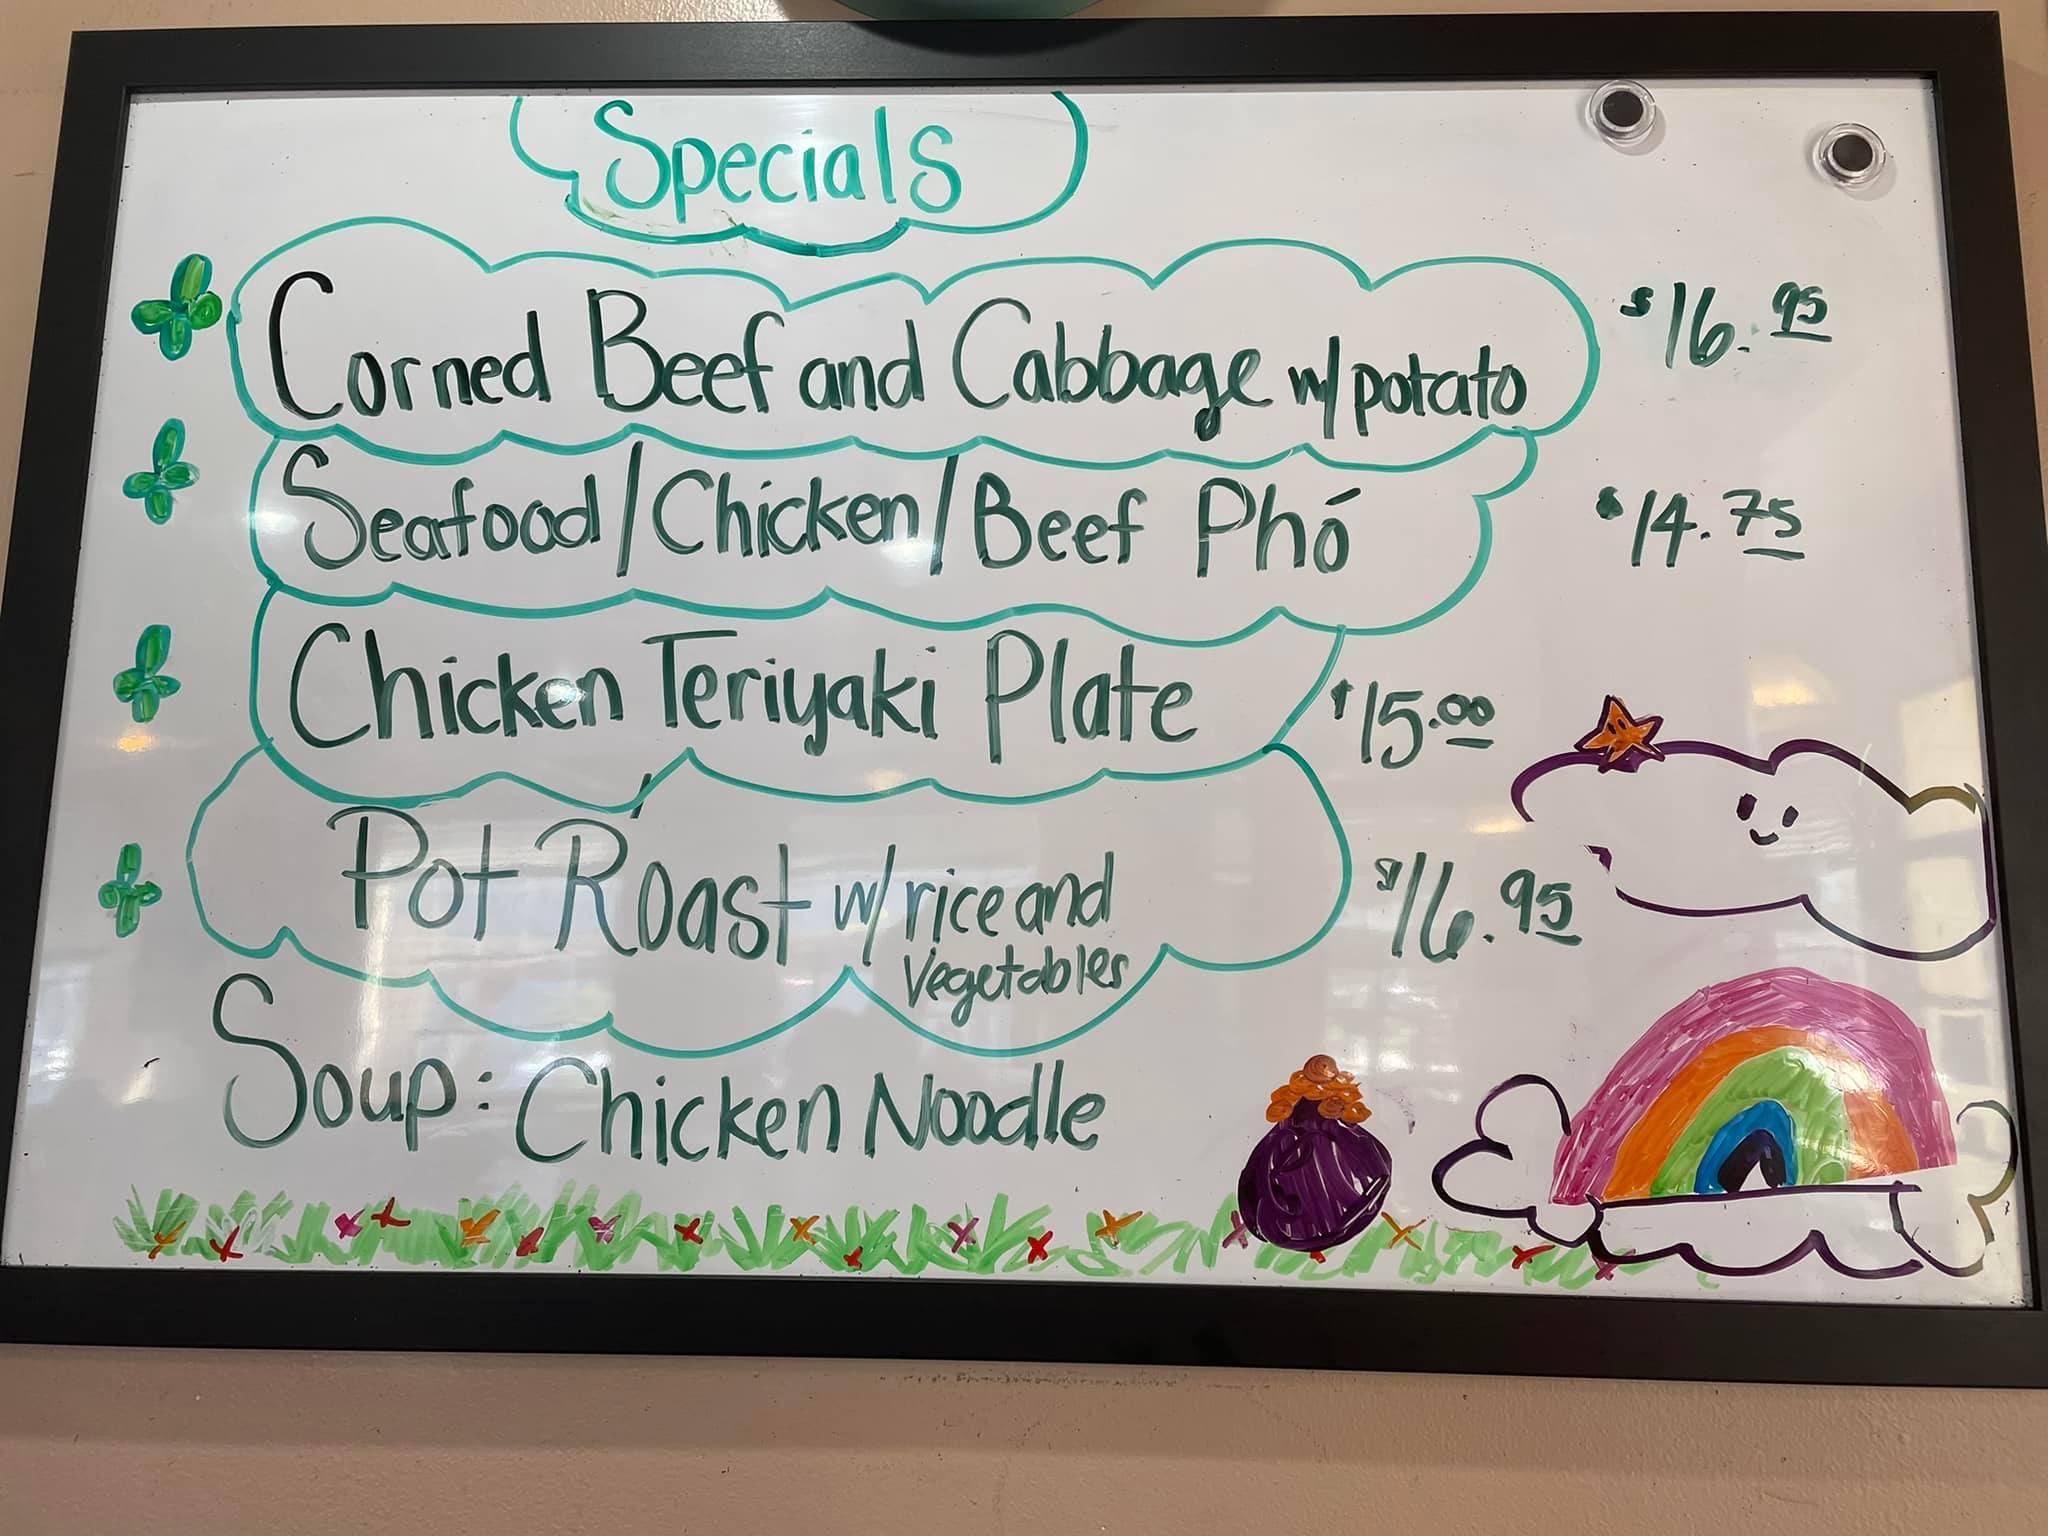 Specials
Corned Beef and Cabbage w/ potato $16.95
Seafood/Chicken/Beef Phó $14.75
Chicken Teriyaki Plate $15.00
Pot Roast w/ rice and $16.95
vegetables
Soup: Chicken Noodle